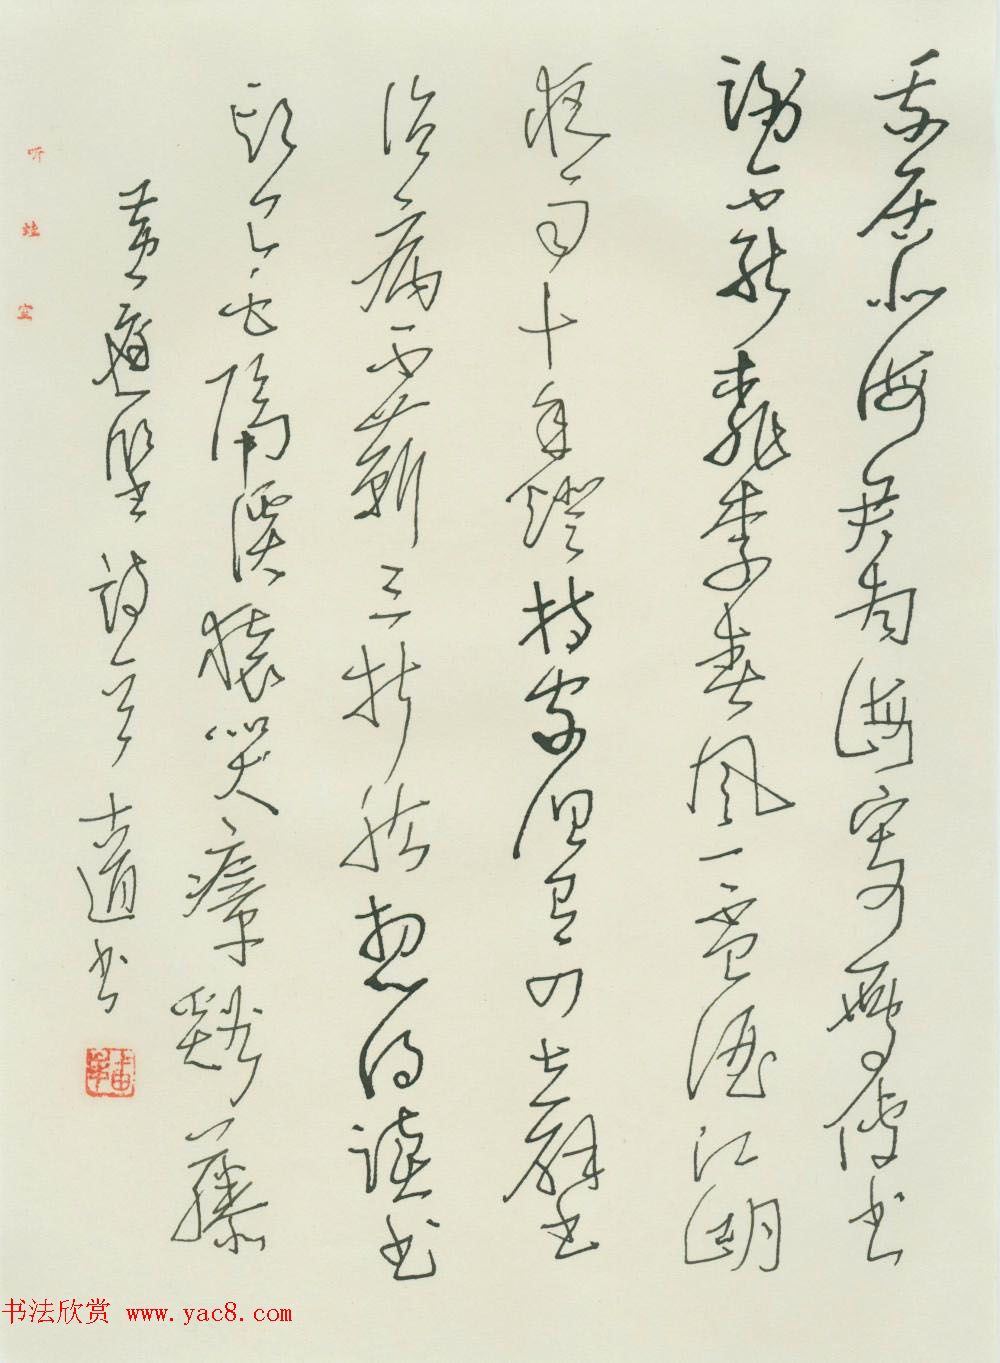 我居北海君南海寄雁傳書
謝不能桃李春風一杯酒江湖
夜雨十年燈持家但有四立壁
治病不蘄三折肱想得讀書
頭已白隔溪猿哭瘴谿藤
黃庭堅詩一首 書
听蛙室
书法欣赏 www.yac8.com